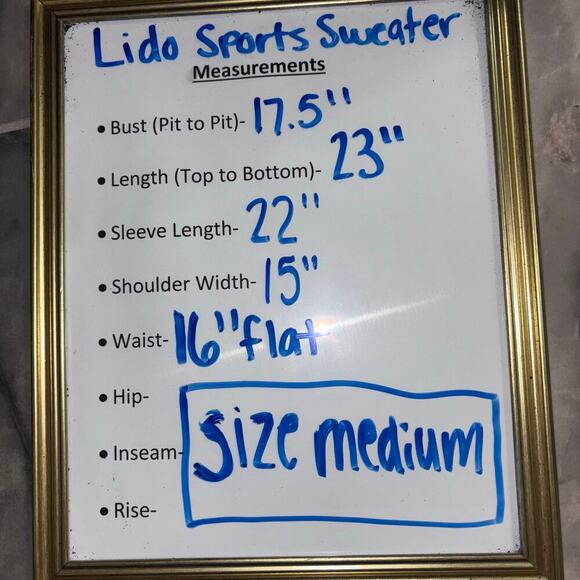 Lido Sports Sweater
Measurements
• Bust (Pit to Pit)- 17.5"
• Length (Top to Bottom)- 23"
• Sleeve Length- 22"
• Shoulder Width- 15"
• Waist- 16" flat
• Hip-
• Inseam-
size medium
• Rise-